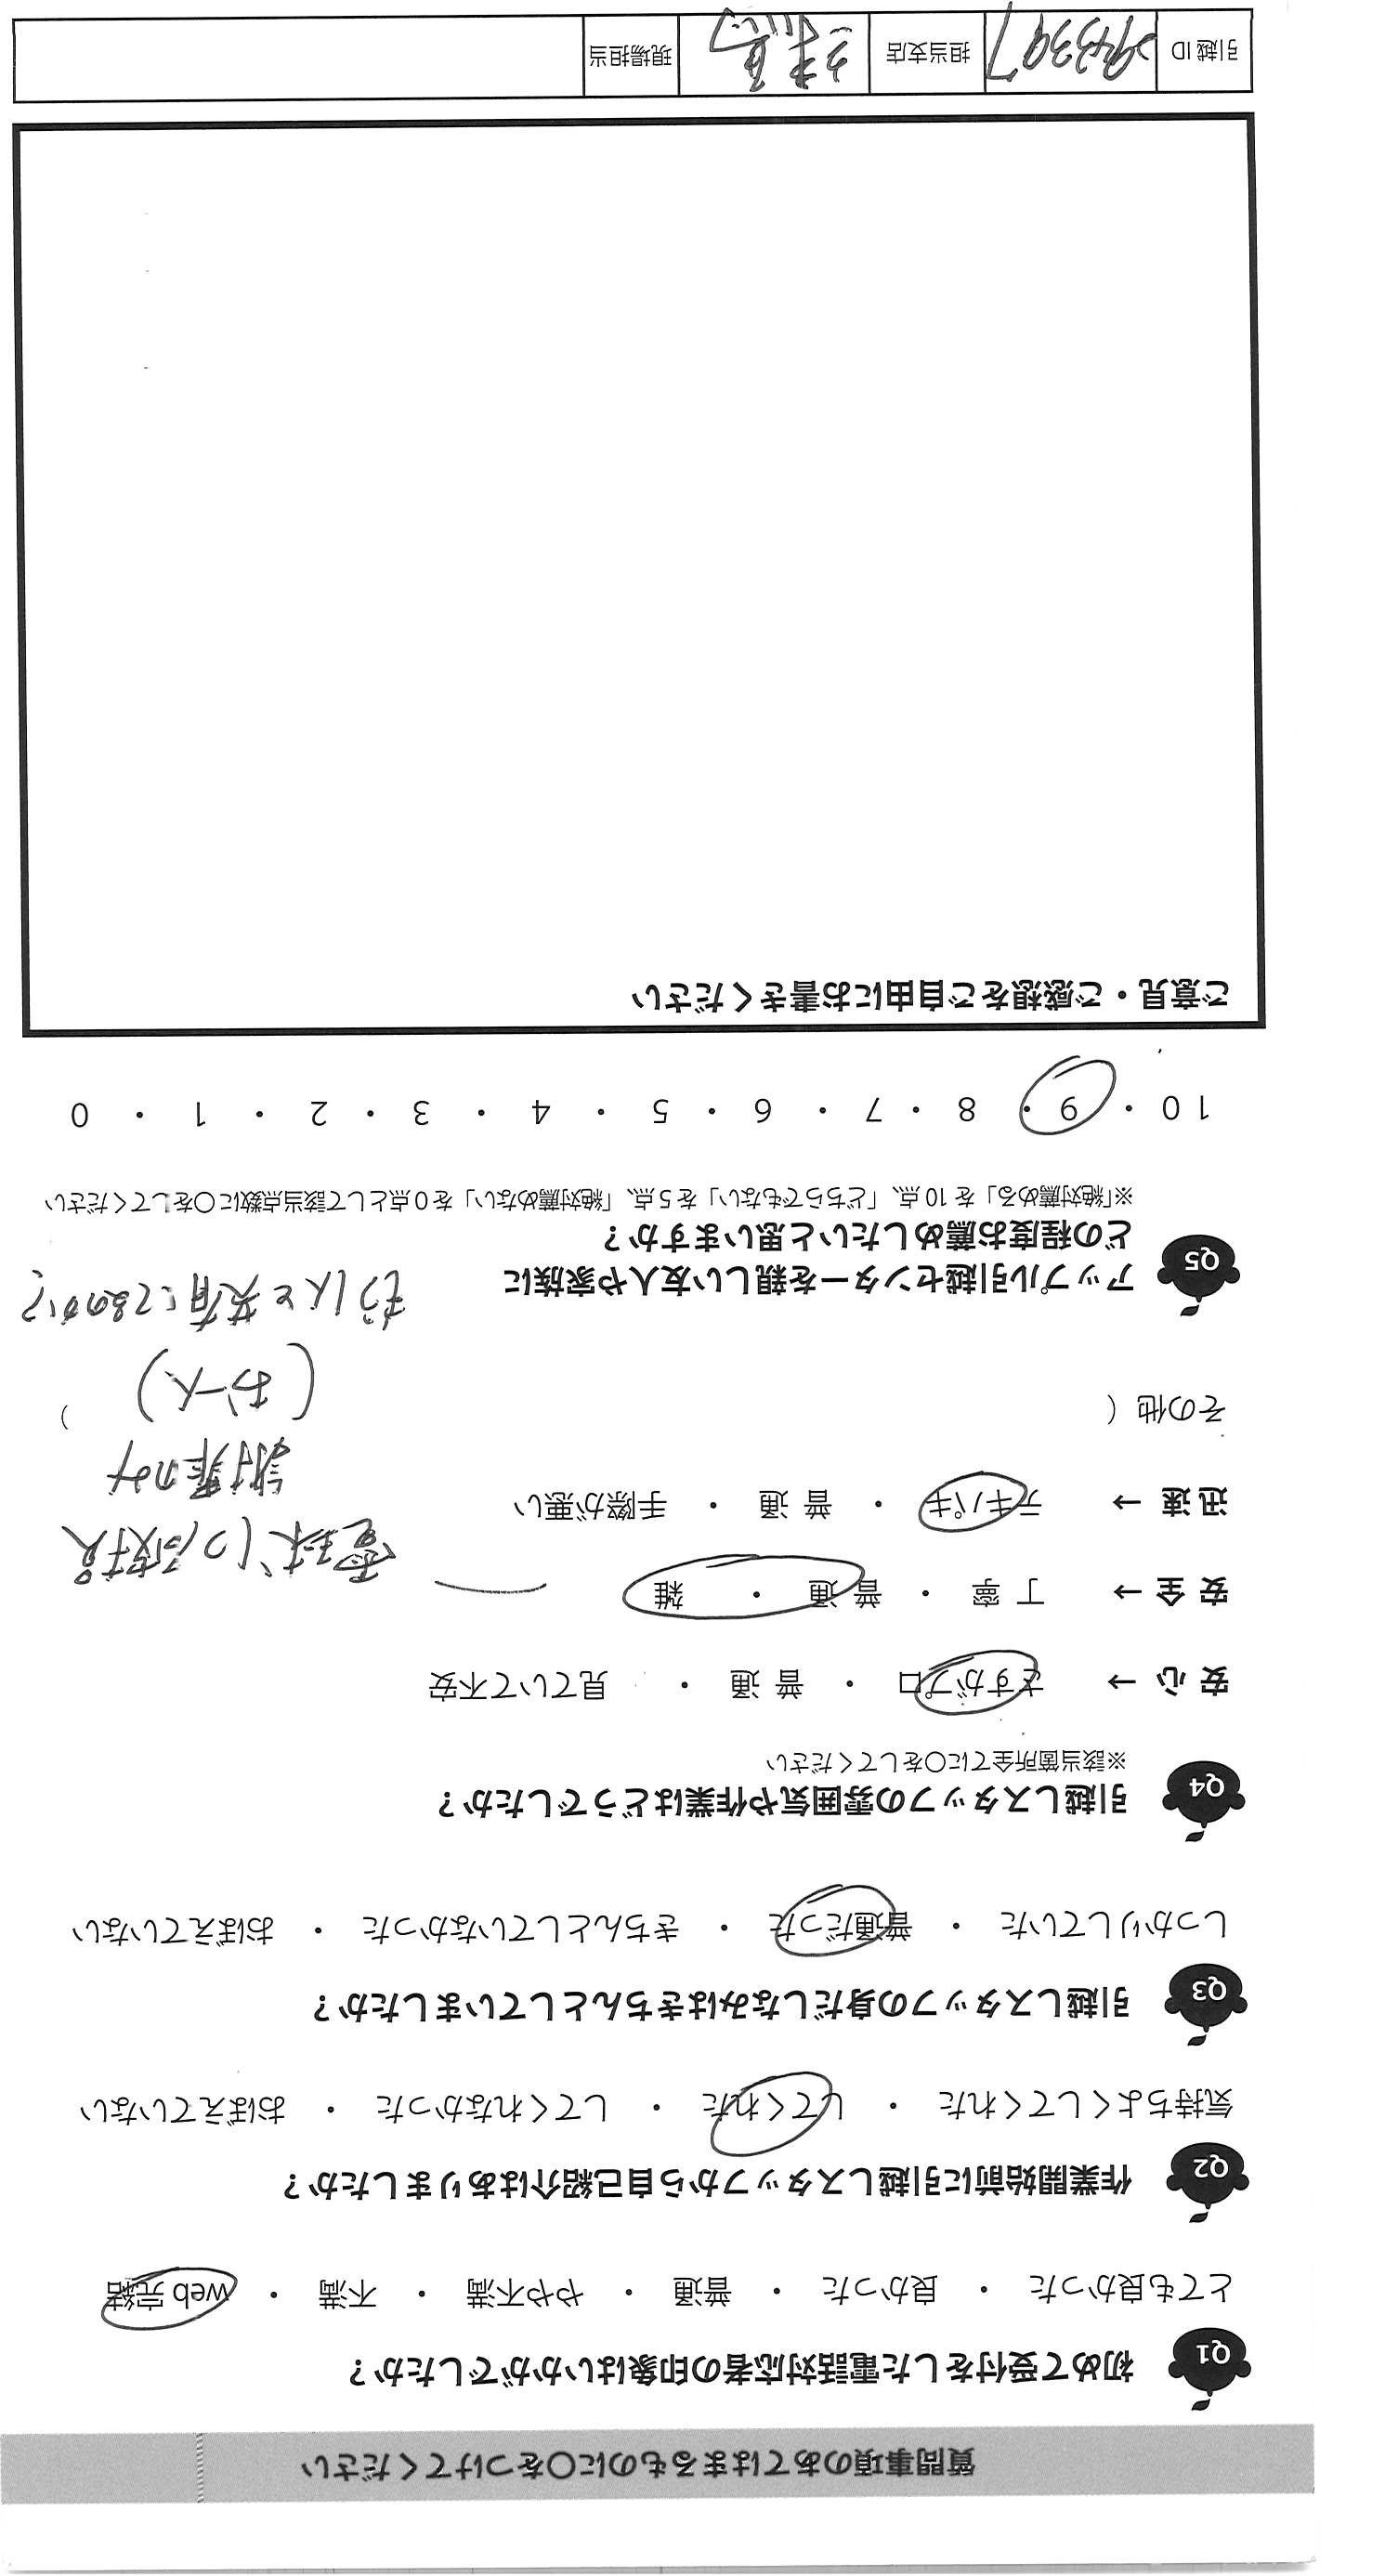 質問事項のあてはまるものに○をつけてください
Q1 初めて受付をした電話対応者の印象はいかがでしたか？
とても良かった ・ 良かった ・ 普通 ・ やや不満 ・ 不満 ・ web 完結
Q2 作業開始前に引越しスタッフから自己紹介はありましたか？
気持ちよくしてくれた ・ してくれた ・ してくれなかった ・ おぼえていない
Q3 引越しスタッフの身だしなみはきちんとしていましたか？
しっかりしていた ・ 普通だった ・ きちんとしていなかった ・ おぼえていない
Q4 引越しスタッフの雰囲気や作業はどうでしたか？
※該当箇所全てに○をしてください
安 心 → さすがプロ ・ 普 通 ・ 見ていて不安
安 全 → 丁 寧 ・ 普 通 ・ 雑
電球1つ破損
迅 速 → テキパキ ・ 普 通 ・ 手際が悪い
謝罪のみ
その他（ ）
(お一人)
もう1人と共有してるのか?
Q5 アップル引越センターを親しい友人や家族に
どの程度お薦めしたいと思いますか？
※「絶対薦める」を 10 点、「どちらでもない」を 5 点、「絶対薦めない」を 0 点として該当点数に○をしてください
10 ・ 9 ・ 8 ・ 7 ・ 6 ・ 5 ・ 4 ・ 3 ・ 2 ・ 1 ・ 0
ご意見・ご感想をご自由にお書きください
引越 ID 担当支店 現場担当